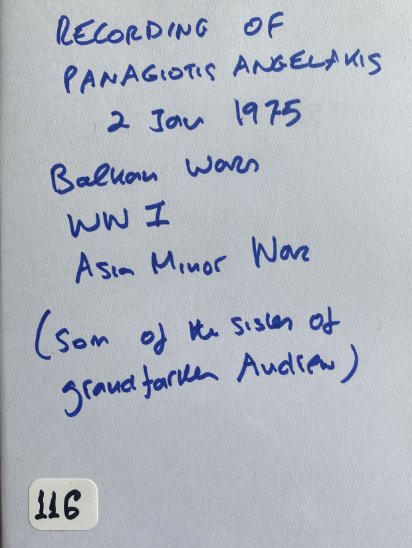 RECORDING OF
PANAGIOTIS ANGELAKIS
2 Jan 1975
Balkan Wars
WW I
Asia Minor War
(Son of the sister of
grandfather Andrew)
116